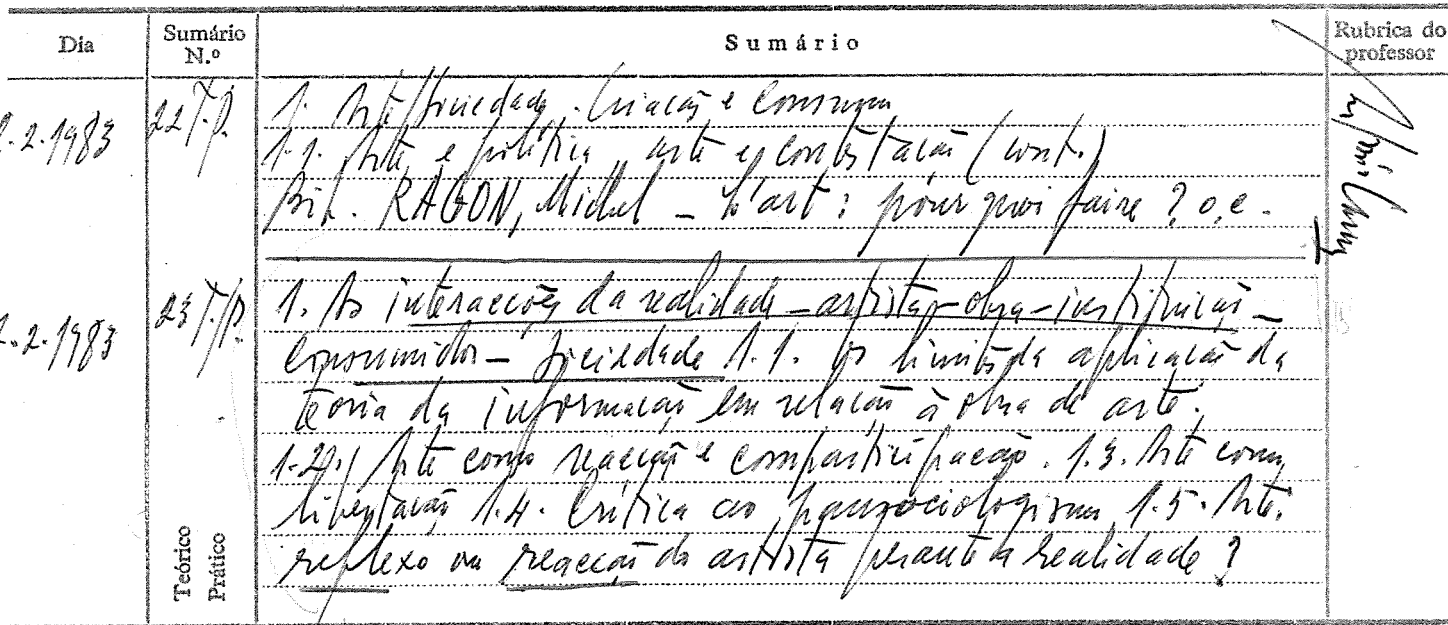 Dia Sumário N.º Sumário Rubrica do professor
.2.1983 22 T.P. 1. Arte/Sociedade. Criação e Consumo
1.1. Arte e política, arte e contestação (cont.)
Bib. RAGON, Michel - L'art: pour quoi faire? o.c.
.2.1983 23 T/P. 1. As interacções da realidade - artista - obra - instituição -
consumidor - Sociedade 1.1. Os limites da aplicação da
teoria da informação em relação à obra de arte.
1.2. Arte como reacção e comparticipação. 1.3. Arte como
libertação 1.4. Crítica ao pansociologismo 1.5. Arte:
reflexo ou reacção do artista perante a realidade?
Teórico
Prático